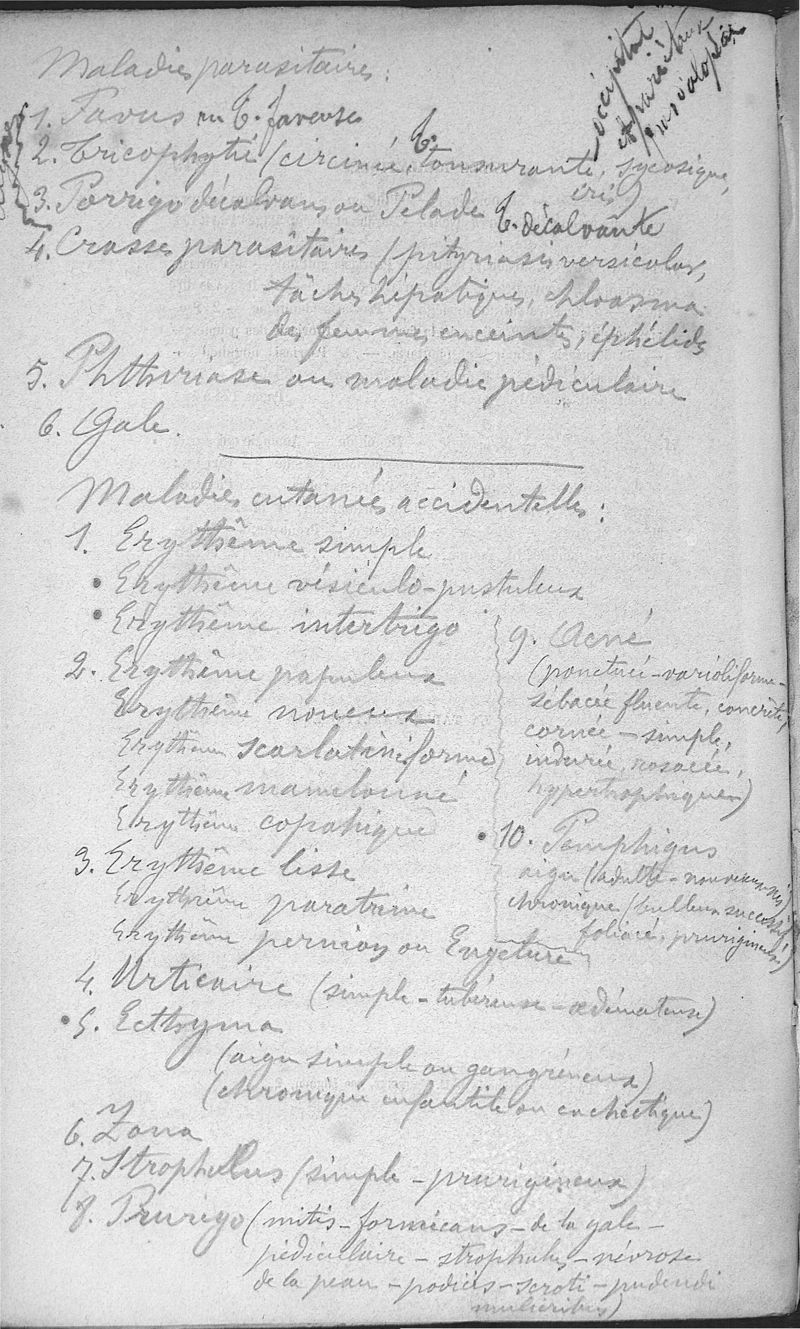 occipital
et pariétaux
Maladies parasitaires :
1. Favus ou T. faveuse
2. Tricophytié (circinée, T. tonsurante, sycosique,
iris)
3. Porrigo décalvans ou Pelade T. décalvante
4. Crasses parasitaires (pityriasis versicolor,
tâches hépatiques, chloasma
des femmes enceintes, éphélides
5. Phthiriase ou maladie pédiculaire
6. Gale.
Maladies cutanées accidentelles :
1. Erythême simple
• Erythême vésiculo-pustuleux
• Erythême intertrigo
2. Erythême papuleux
Erythême noueux
Erythême scarlatiniforme
Erythême mamelonné
Erythême copahique
3. Erythême lisse
Erythême paratrime
Erythême pernion ou Engelure
4. Urticaire (simple - tubéreuse - œdémateuse)
• 5. Ecthyma
(aigu simple ou gangréneux)
(chronique infantile ou cachectique)
6. Zona
7. Strophulus (simple - prurigineux)
8. Prurigo (mitis - formicans - de la gale -
pédiculaire - strophulus - névrose
de la peau - podicis - scroti - pudendi
muliebris)
9. Acné
(ponctuée - varioliforme -
sébacée fluente, concrète,
cornée - simple,
indurée, rosacée,
hypertrophique)
• 10. Pemphigus
aigu (adulte - nouveaux-nés)
chronique (bulleux successifs,
foliacé, prurigineux)